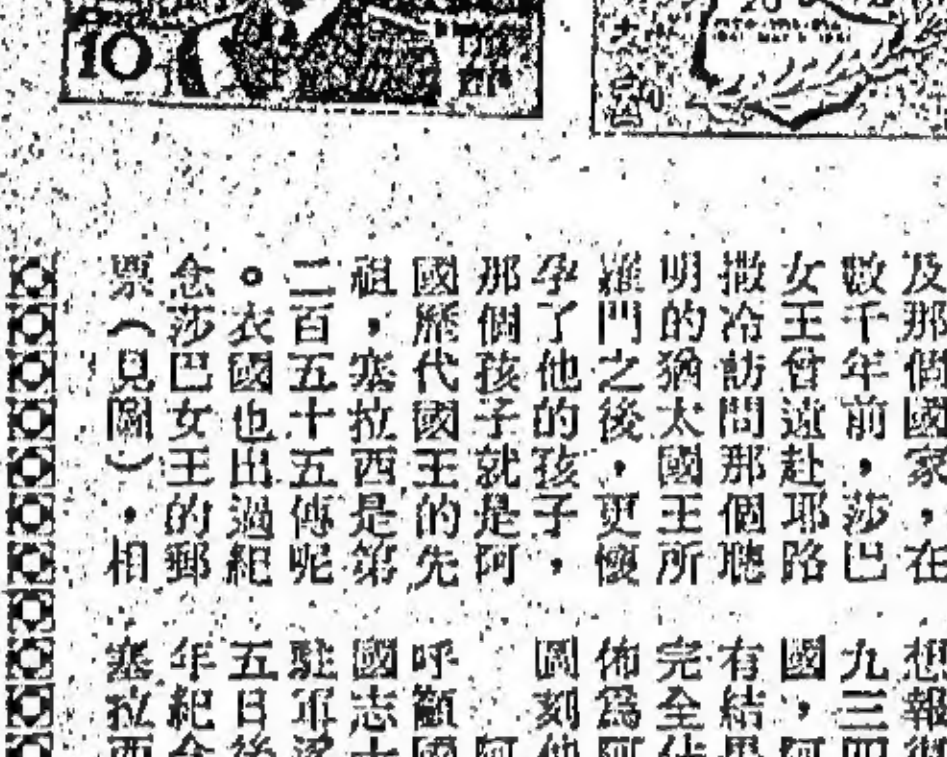 10
20
及那個國家，在
數千年前，莎巴
女王曾遠赴耶路
撒冷訪問那個聰
明的猶太國王所
羅門之後，更懷
孕了他的孩子，
那個孩子就是阿
國歷代國王的先
祖，塞拉西是第
二百五十五傳呢
。衣國也出過紀
念莎巴女王的郵
票（見圖），相
想報
九三四
國，阿
有結果
完全佔
佈為阿
圖刻他
阿
呼籲國
國志士
駐軍
五日後
年紀念
塞拉西